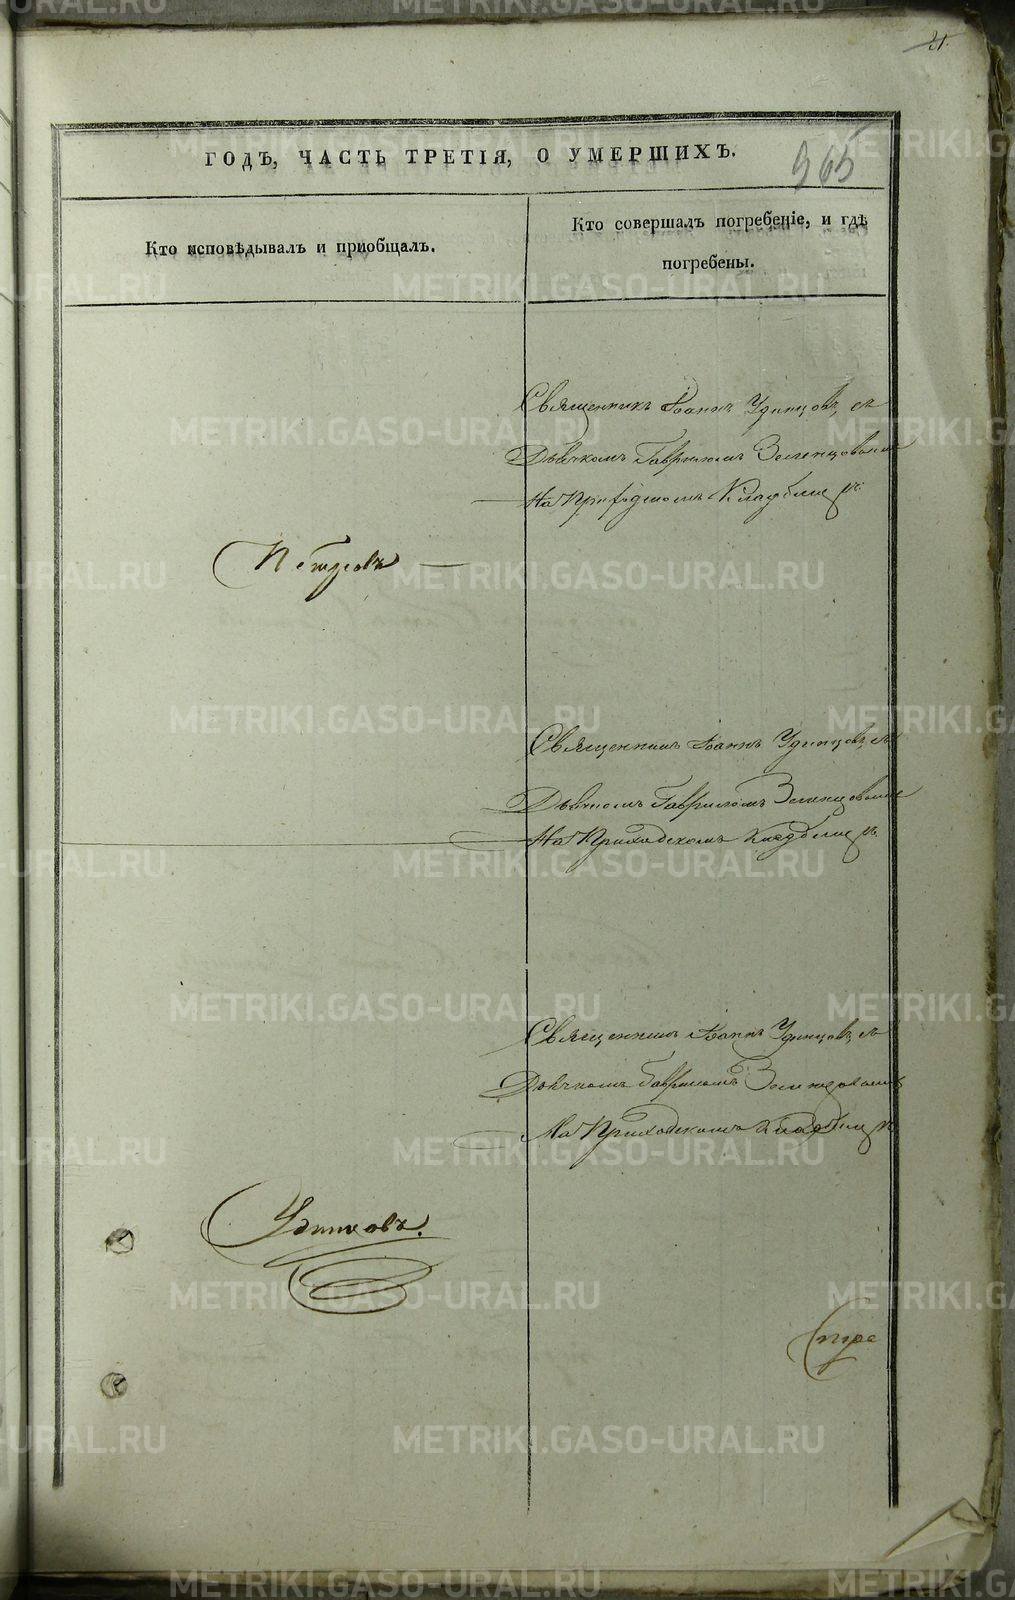 21.
ГОДЪ, ЧАСТЬ ТРЕТІЯ, О УМЕРШИХЪ.
965
Кто исповѣдывалъ и пріобщалъ.
Кто совершалъ погребеніе, и гдѣ
погребены.
Священникъ Іоаннъ Удинцовъ, съ
Дьячкомъ Гавриломъ Зеленцовымъ
На Приходскомъ Кладбищѣ
Священникъ Іоаннъ Удинцовъ, съ
Дьячкомъ Гавриломъ Зеленцовымъ
На Приходскомъ Кладбищѣ
Священникъ Іоаннъ Удинцовъ, съ
Дьячкомъ Гавриломъ Зеленцовымъ
На Приходскомъ Кладбищѣ
METRIKI.GASO-URAL.RU